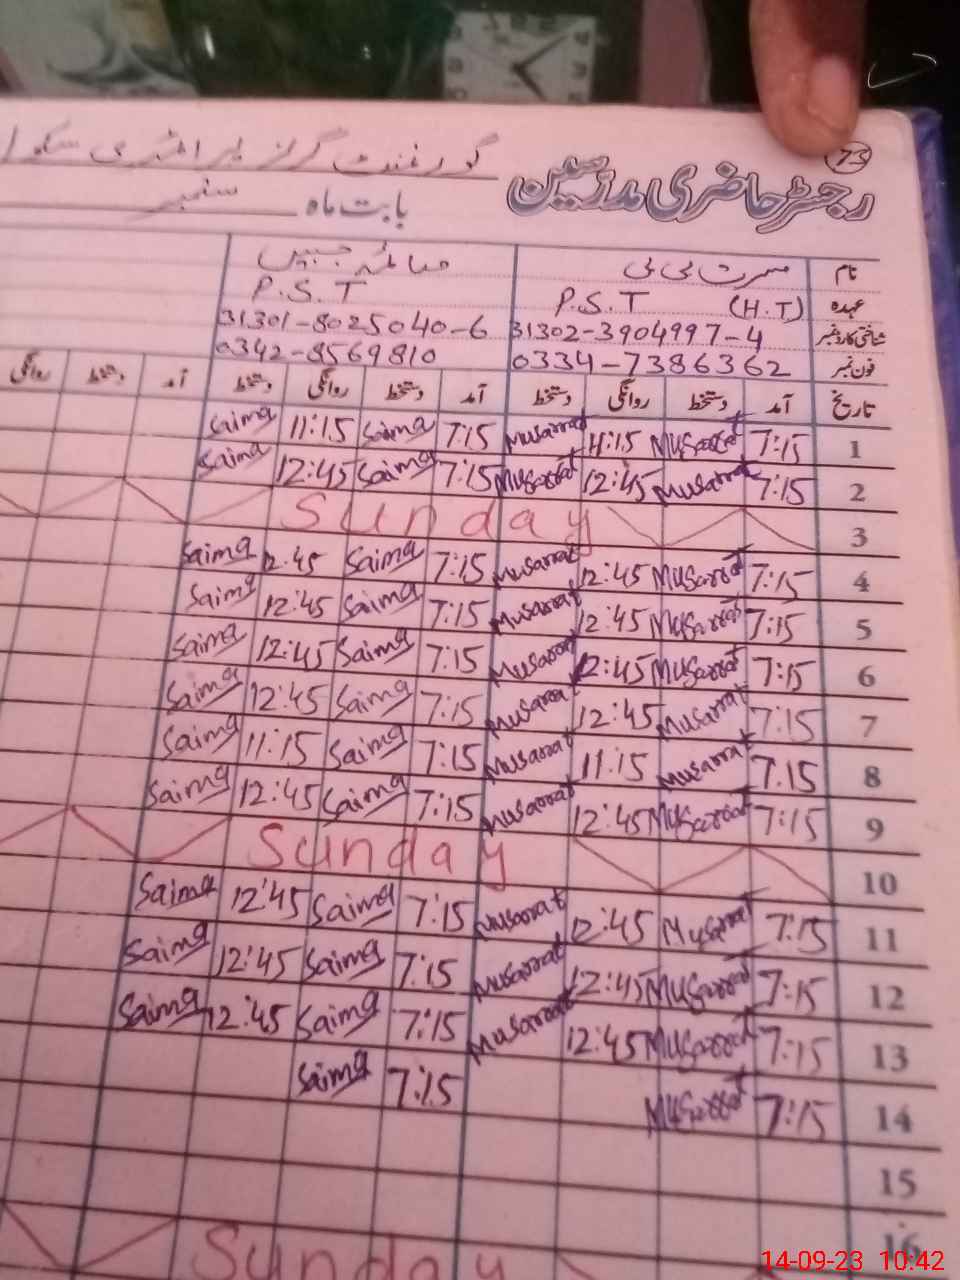 73
رجسٹر حاضری مدرسین گورنمنٹ گرلز پرائمری سکول
بابت ماہ ستمبر
نام مسرت بی بی صائمہ جبیں
عہدہ P.S.T (H.T) P.S.T
شناختی کارڈ نمبر 31302-3904997-4 31301-8025040-6
فون نمبر 0334-7386362 0342-8569810
تاریخ آمد دستخط روانگی دستخط آمد دستخط روانگی دستخط آمد دستخط روانگی
1 7:15 Musarrat 11:15 Musarrat 7:15 Saima 11:15 Saima
2 7:15 Musarrat 12:45 Musarrat 7:15 Saima 12:45 Saima
3 Sunday
4 7:15 Musarrat 12:45 Musarrat 7:15 Saima 12:45 Saima
5 7:15 Musarrat 12:45 Musarrat 7:15 Saima 12:45 Saima
6 7:15 Musarrat 12:45 Musarrat 7:15 Saima 12:45 Saima
7 7:15 Musarrat 12:45 Musarrat 7:15 Saima 12:45 Saima
8 7:15 Musarrat 11:15 Musarrat 7:15 Saima 11:15 Saima
9 7:15 Musarrat 12:45 Musarrat 7:15 Saima 12:45 Saima
10 Sunday
11 7:15 Musarrat 12:45 Musarrat 7:15 Saima 12:45 Saima
12 7:15 Musarrat 12:45 Musarrat 7:15 Saima 12:45 Saima
13 7:15 Musarrat 12:45 Musarrat 7:15 Saima 12:45 Saima
14 7:15 Musarrat 7:15 Saima
15
16
Sunday
14-09-23 10:42